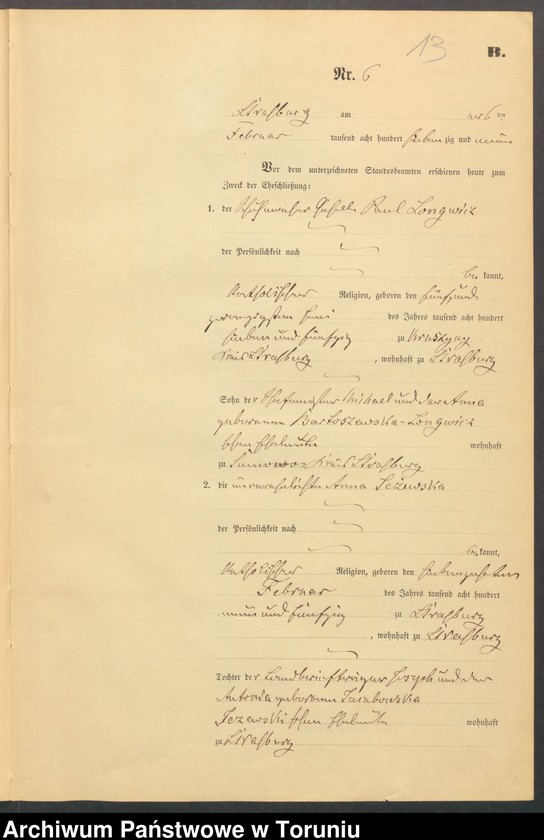 13
B.
Nr. 6
Straßburg am 6 ten
Februar tausend acht hundert siebenzig und neun
Vor dem unterzeichneten Standesbeamten erschienen heute zum
Zweck der Eheschließung:
1. der Schuhmacher Geselle Paul Longwitz
der Persönlichkeit nach
be kannt,
katholischer Religion, geboren den fünf und
zwanzigsten Juni des Jahres tausend acht hundert
sieben und fünfzig zu Kruszyny
Kreis Straßburg , wohnhaft zu Straßburg
Sohn der Michael und der Anna
geborenen Bartoszewska-Longwitz
schen Eheleute wohnhaft
zu Kreis Straßburg
2. die unverehelichte Anna Jeżewska
der Persönlichkeit nach
be kannt,
katholischer Religion, geboren den siebenzehnten
Februar des Jahres tausend acht hundert
neun und fünfzig zu Straßburg
, wohnhaft zu Straßburg
Tochter der Landbriefträger Joseph und der
geborenen
Jezewski schen Eheleute wohnhaft
zu Straßburg
Archiwum Państwowe w Toruniu